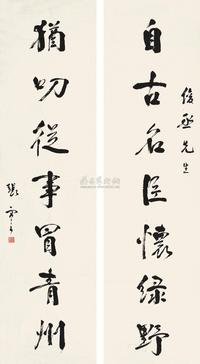 俊丞先生
自古名臣懷綠野
猶叨從事冒青州
張